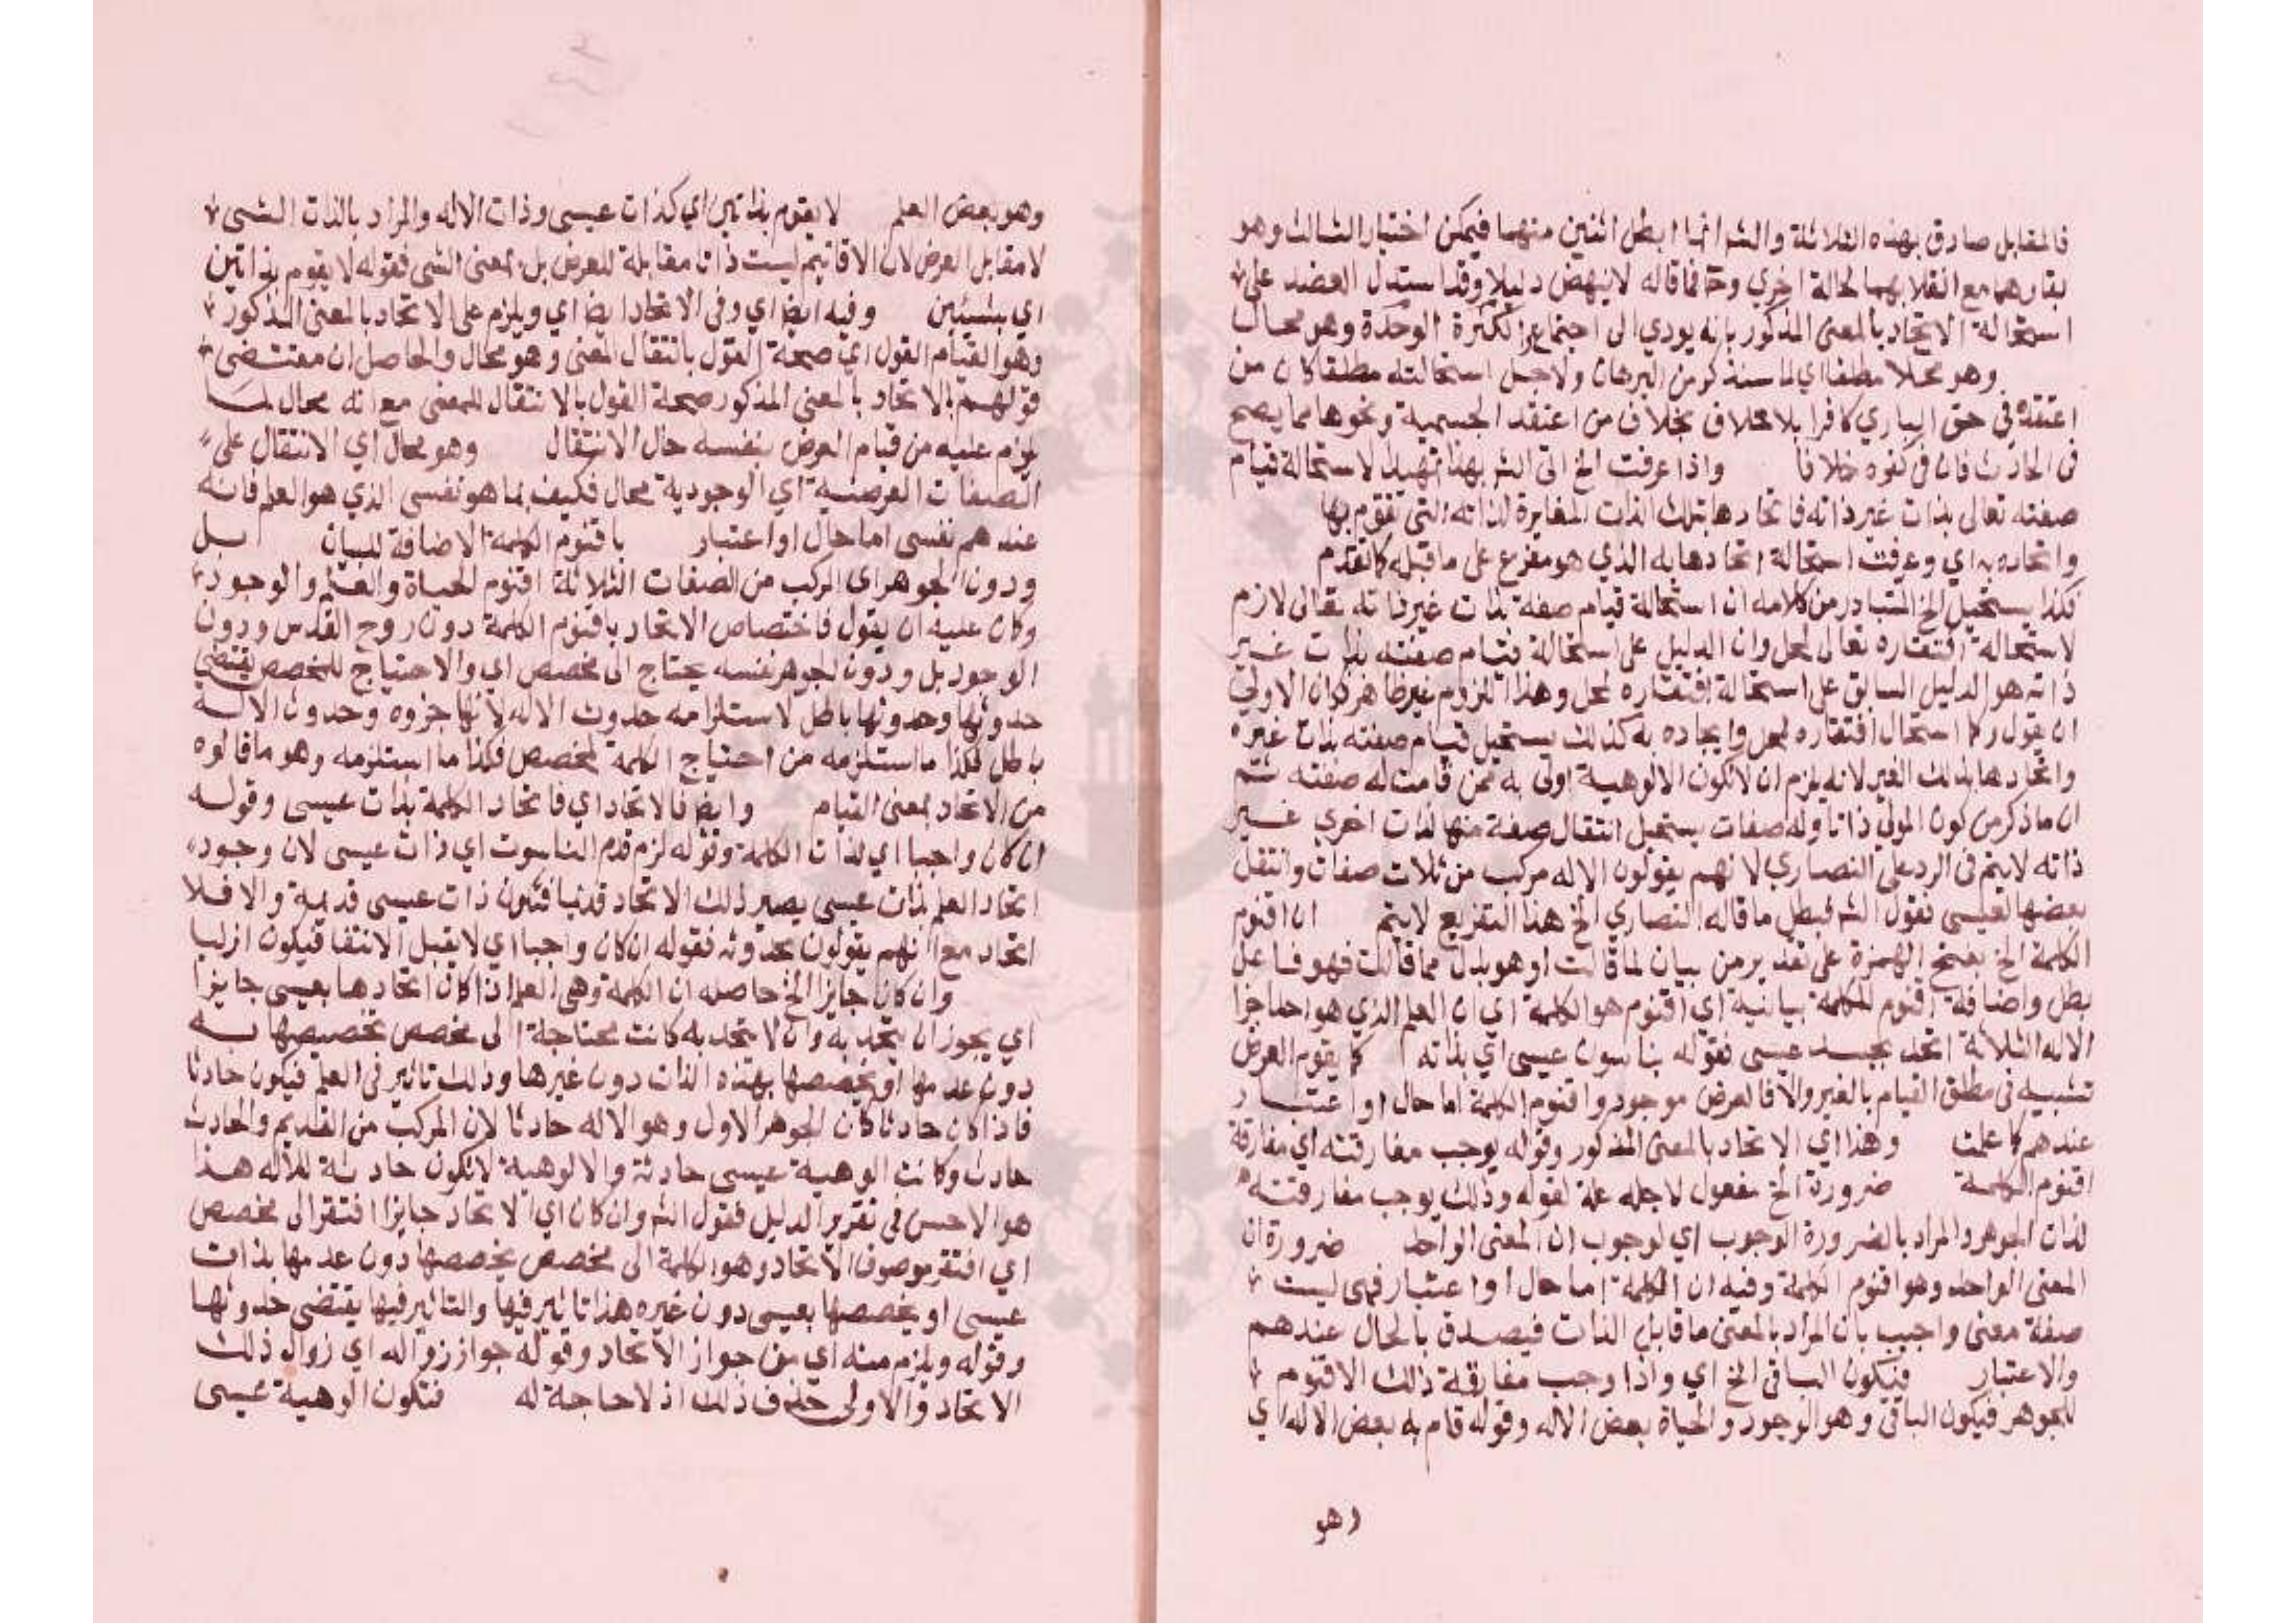 فالمقابل صادق بهذه الثلاثة والشر انما ابطل اثنين منهما فيمكن اختيار الثالث وهو
بقاوهما مع انقلابهما لحالة اخري وح فما قاله لا ينهض دليلا وقد استدل العضد على
استحالة الاتحاد بالمعنى المذكور بانه يودي الى اجتماع الكثرة الوحدة وهو محال
وهو محلا مطلقا اي لما سنذكر من البرهان ولاجل استحالته مطلقا كان من
اعتقده في حق الباري كافرا بلا خلاف بخلاف من اعتقد الجسمية ونحوها مما يصح
في الحادث فان في كفره خلافا واذا عرفت الخ اتى الشر بهذا تمهيدا لاستحالة قيام
صفته تعالى بذات غير ذاته فاتحادها بتلك الذات المغايرة لذاته التي تقوم بها
واتحاده به اي وعرفت استحالة اتحادها به الذي هو مفرع على ما قبله كما تقدم
فكذا يستحيل الخ المتبادر من كلامه ان استحالة قيام صفة بذات غير ذاته تعالى لازم
لاستحالة افتقاره تعالى لمحل وان الدليل على استحالة قيام صفته بذات غير
ذاته هو الدليل السابق على استحالة افتقاره لمحل وهذا اللزوم غير ظاهر فكان الاولى
ان يقول وكما استحال افتقاره لمحل وايجاده به كذلك يستحيل قيام صفته بذات غيره
واتحادها بذلك الغير لانه يلزم ان لا تكون الالوهية اولى به ممن قامت له صفته ثم
ان ما ذكر من كون المولى ذاتا وله صفات يستحيل انتقال صفة منها لذات اخري غير
ذاته لا يتم في الرد على النصاري لانهم يقولون الاله مركب من ثلاث صفات وانتقل
بعضها لعيسى فقول الشر فبطل ما قاله النصاري الخ هذا التفريع لا يتم ان اقنوم
الكلمة الخ بفتح الهمزة على تقدير من بيان لما قالت او هو بدل مما قالت فهو فاعل
بطل واضافة اقنوم للكلمة بيانية اي اقنوم هو الكلمة اي ان العلم الذي هو احد اجزا
الاله الثلاثة اتحد بجسد عيسى فقوله بناسوت عيسى اي بذاته كما يقوم العرض
تشبيه في مطلق القيام بالغير والا فالعرض موجود واقنوم الكلمة اما حال او اعتبار
عندهم كما علمت وهذا اي الاتحاد بالمعنى المذكور وقوله يوجب مفارقته اي مفارقة
اقنوم الكلمة ضرورة الخ مفعول لاجله علة لقوله وذلك يوجب مفارقته
لذات الجوهر والمراد بالضرورة الوجوب اي لوجوب ان المعنى الواحد ضرورة ان
المعنى الواحد وهو اقنوم الكلمة وفيه ان الكلمة اما حال او اعتبار فهي ليست
صفة معنى واجيب بان المراد بالمعنى ما قابل الذات فيصدق بالحال عندهم
والاعتبار فيكون الباقي الخ اي واذا وجب مفارقة ذلك الاقنوم
للجوهر فيكون الباقي وهو الوجود والحياة بعض الاله وقوله قام به بعض الاله اي
وهو
وهو بعض العلم لا يقوم بذاتين اي كذات عيسى وذات الاله والمراد بالذات الشى
لا مقابل العرض لان الاقانيم ليست ذاتا مقابلة للعرض بل بمعنى الشى فقوله لا يقوم بذاتين
اي بشيئين وفيه ايضا اي وفي الاتحاد ايضا اي ويلزم على الاتحاد بالمعنى المذكور
وهو القيام القول اي صحة القول بانتقال المعنى وهو محال والحاصل ان مقتضى
قولهم بالاتحاد بالمعنى المذكور صحة القول بالانتقال للمعنى مع انه محال لما
يلزم عليه من قيام العرض بنفسه حال الانتقال وهو محال اي الانتقال على
الصفات العرضية اي الوجودية محال فكيف بما هو نفسى الذي هو العلم فانه
عندهم نفسى اما حال او اعتبار باقنوم الكلمة الاضافة للبيان بل
ودون الجوهر اي المركب من الصفات الثلاثة اقنوم الحياة والعلم والوجود
وكان عليه ان يقول فاختصاص الاتحاد باقنوم الكلمة دون روح القدس ودون
الوجود بل ودون الجوهر نفسه يحتاج الى مخصص اي والاحتياج للمخصص يقتضي
حدوثها وحدوثها باطل لاستلزامه حدوث الاله لانها جزوه وحدوث الاله
باطل فكذا ما استلزمه من احتياج الكلمة لمخصص فكذا ما استلزمه وهو ما قالوه
من الاتحاد بمعنى القيام وايضا فالاتحاد اي فاتحاد الكلمة بذات عيسى وقوله
ان كان واجبا اي لذات الكلمة وقوله لزم قدم الناسوت اي ذات عيسى لان وجود
اتحاد العلم بذات عيسى يصير ذلك الاتحاد قديما فتكون ذات عيسى قديمة والا فلا
اتحاد مع انهم يقولون بحدوثه فقوله ان كان واجبا اي لا يقبل الانتفا فيكون ازليا
وان كان جايزا الخ حاصله ان الكلمة وهي العلم اذا كان اتحادها بعيسى جايزا
اي يجوز ان يتحد به وان لا يتحد به كانت محتاجة الى مخصص تخصيصها به
دون عدمها او يخصصها بهذه الذات دون غيرها وذلك تاثير في العلم فيكون حادثا
فاذا كان حادثا كان الجوهر الاول وهو الاله حادثا لان المركب من القديم والحادث
حادث وكانت الوهية عيسى حادثة والالوهية لا تكون حادثة للاله هذا
هو الاحسن في تقرير الدليل فقول الشر وان كان اي الاتحاد جايزا افتقر الى مخصص
اي افتقر موصوف الاتحاد وهو الكلمة الى مخصص يخصصها دون عدمها بذات
عيسى او يخصصها بعيسى دون غيره هذا تاثير فيها والتاثير فيها يقتضى حدوثها
وقوله ويلزم منه اي من جواز الاتحاد وقوله جواز زواله اي زوال ذلك
الاتحاد والاولى حذف ذلك اذ لا حاجة له فتكون الوهية عيسى